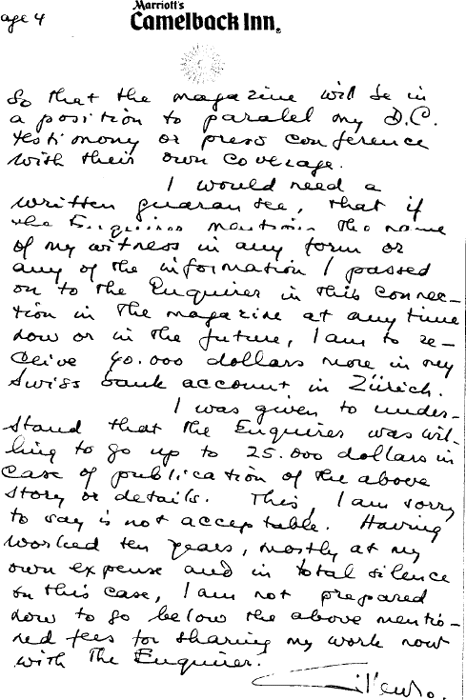 age 4
Marriott's
Camelback Inn®
So that the magazine will be in
a position to paralel my D.C.
testimony or press conference
with their own coverage.
I would need a
written guarantee, that if
the Enquirer mentions the name
of my witness in any form or
any of the information I passed
on to the Enquirer in this connec-
tion in the magazine at any time
now or in the future, I am to re-
ceive 40.000 dollars more in my
Swiss bank account in Zürich.
I was given to under-
stand that the Enquirer was wil-
ling to go up to 25.000 dollars in
case of publication of the above
story or details. This, I am sorry
to say is not acceptable. Having
worked ten years, mostly at my
own expense and in total silence
on this case, I am not prepared
now to go below the above mentio-
ned fees for sharing my work now
with The Enquirer.